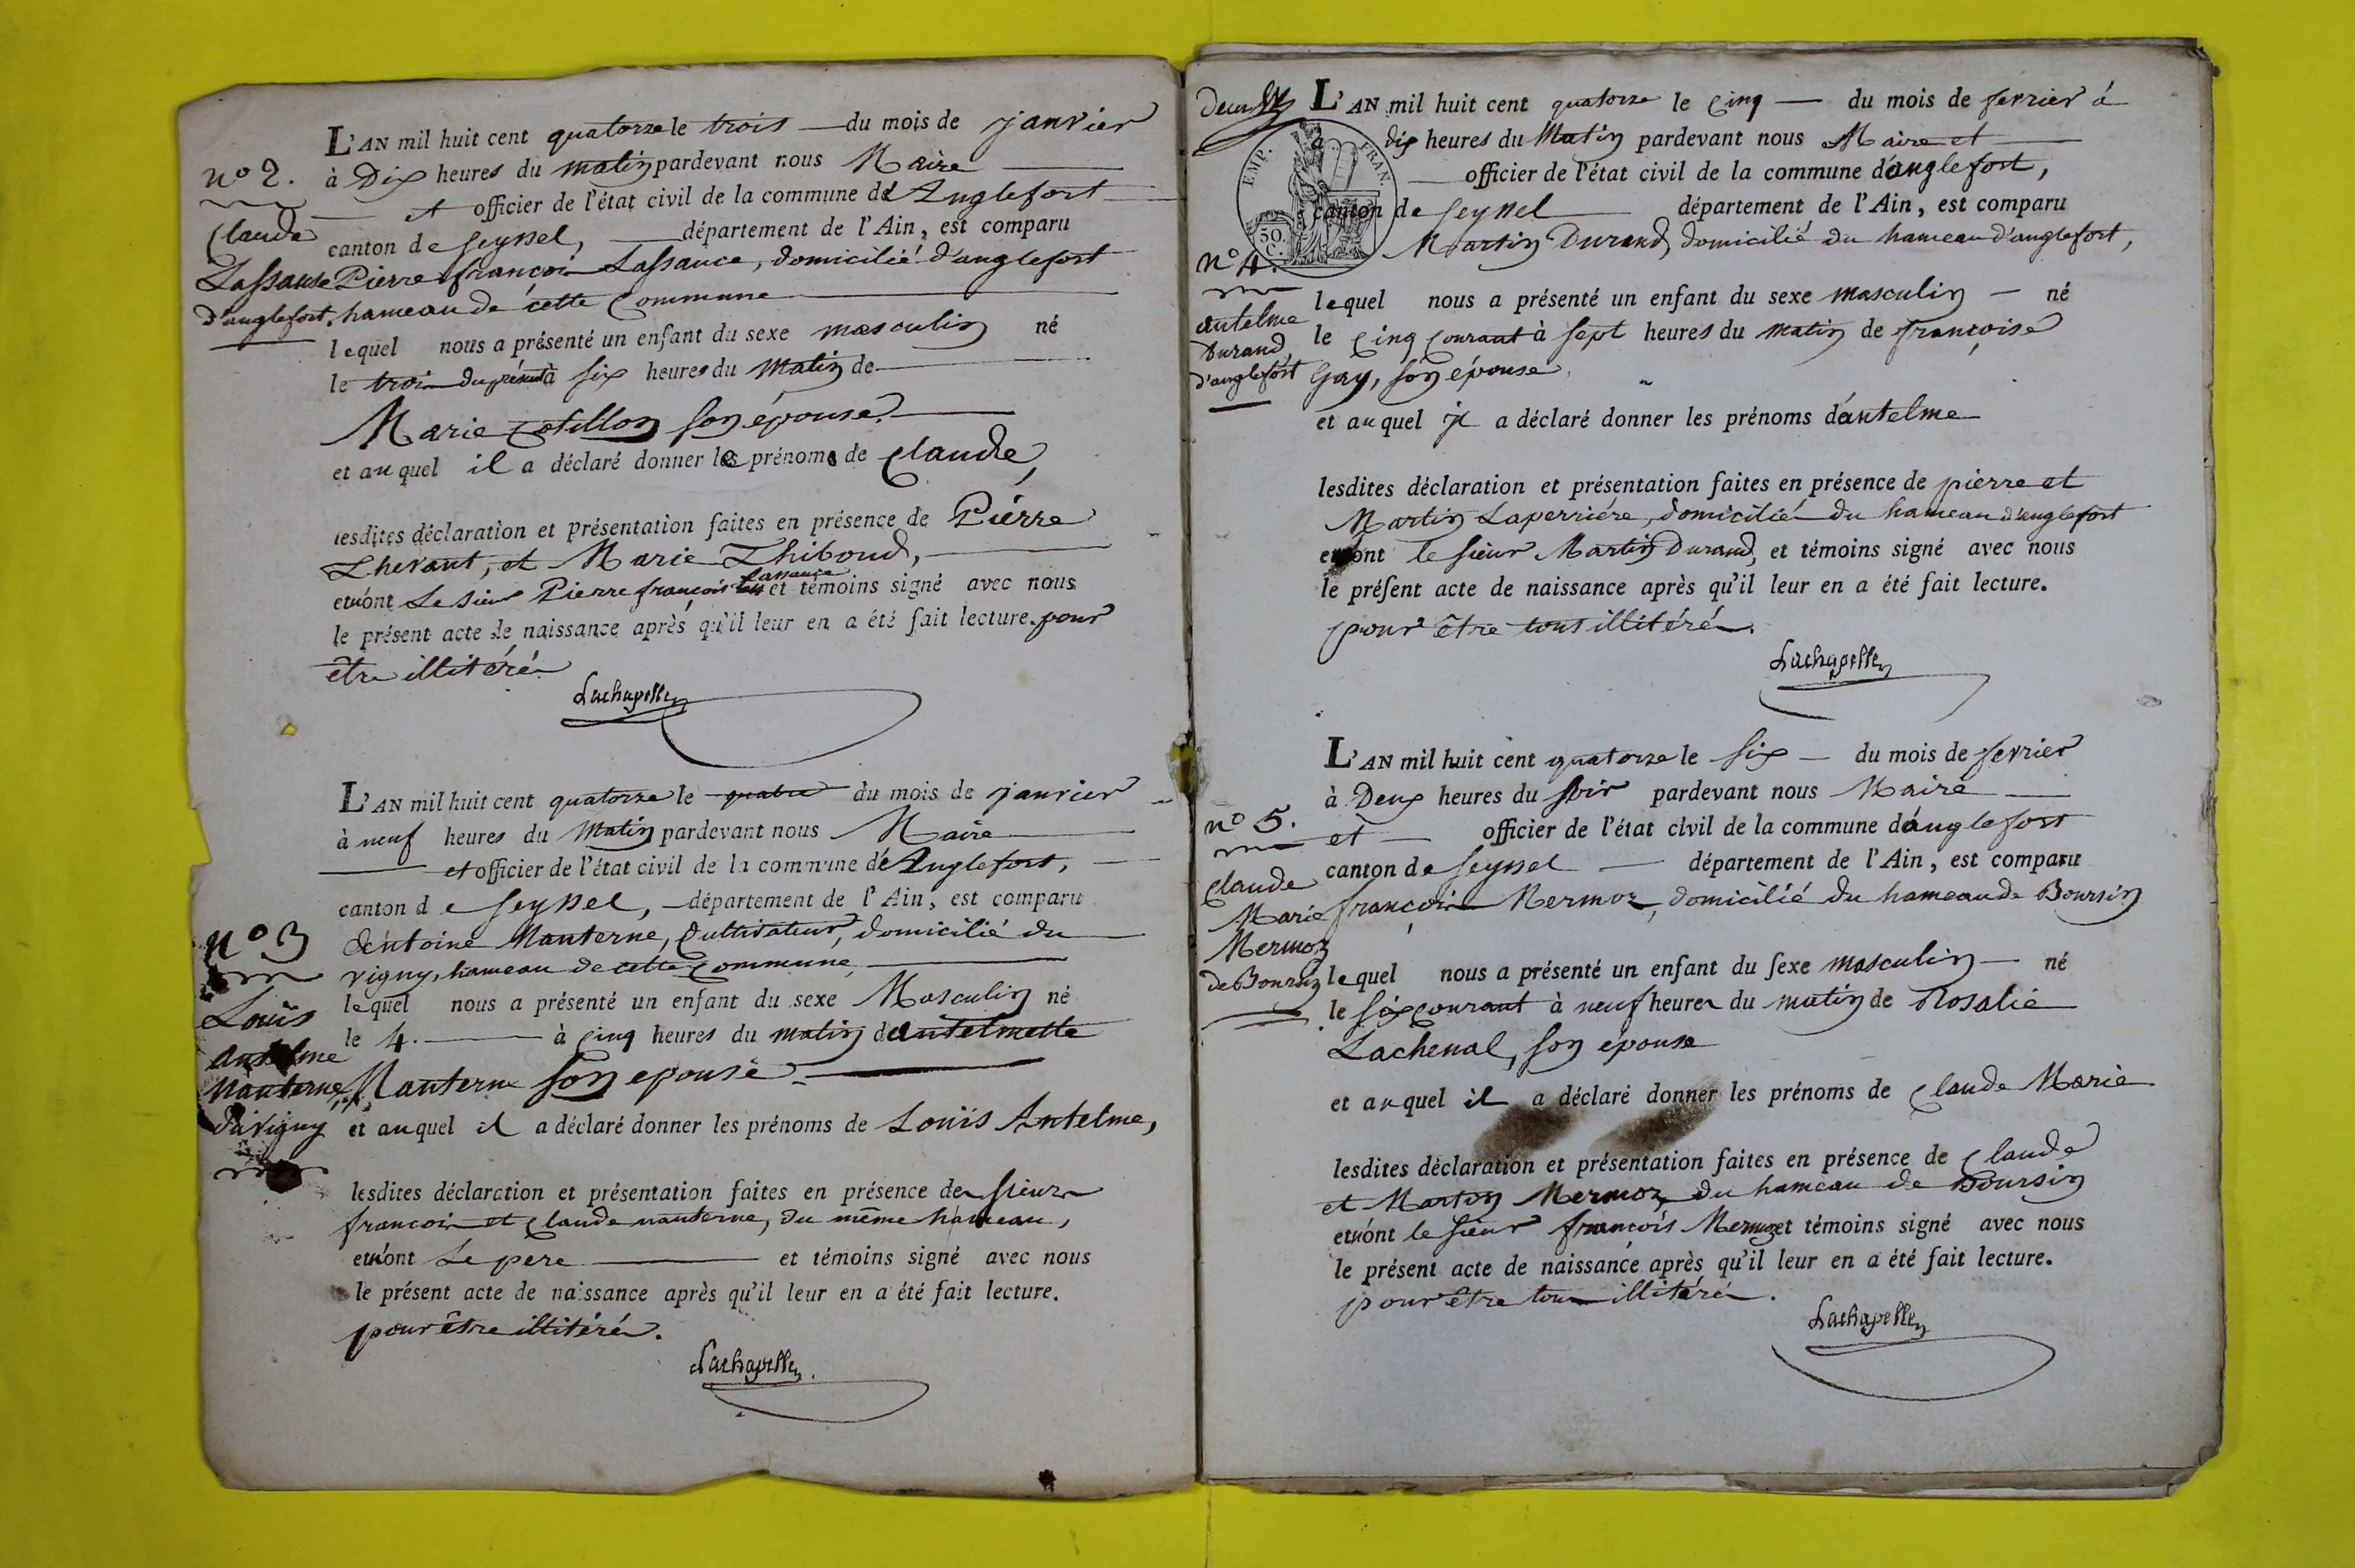 L'AN mil huit cent quatorze le trois — du mois de janvier
à Dix heures du matin pardevant nous Maire
et officier de l'état civil de la commune de Anglefort
canton de Seyssel, département de l'Ain, est comparu
Pierre françois Lassance, domicilié d'anglefort
hameau de cette Commune
lequel nous a présenté un enfant du sexe masculin né
le trois du présent à six heures du matin de
Marie Cotillon son épouse.
et auquel il a déclaré donner le prénoms de Claude,
lesdites déclaration et présentation faites en présence de Pierre
Lhevant, et Marie Thiboud,
et n'ont Le sieur Pierre françois Lassance et témoins signé avec nous
le présent acte de naissance après qu'il leur en a été fait lecture. pour
être illitérés
Lachapelle
n° 2.
Claude
Lassanse
d'anglefort.
L'AN mil huit cent quatorze le quatre du mois de janvier
à neuf heures du matin pardevant nous Maire
et officier de l'état civil de la commune de Anglefort,
canton de Seyssel, département de l'Ain, est comparu
Antoine Nanterne, Cultivateur, domicilié du
vigny, hameau de cette Commune,
lequel nous a présenté un enfant du sexe Masculin né
le 4. à cinq heures du matin dantelmette
Nanterne son épouse.
et auquel il a déclaré donner les prénoms de Louis Antelme,
lesdites déclaration et présentation faites en présence des sieurs
francois et Claude nanterne, du même hameau,
et n'ont Le pere et témoins signé avec nous
le présent acte de naissance après qu'il leur en a été fait lecture.
pour être illitérés.
Lachapelle.
n° 3
Louis
Antelme
Nanterne
Du vigny
L'AN mil huit cent quatorze le cinq — du mois de fevrier à
à dix heures du Matin pardevant nous Maire et
officier de l'état civil de la commune d'anglefort,
canton de Seyssel département de l'Ain, est comparu
Martin Durand, domicilié du hameau d'anglefort,
lequel nous a présenté un enfant du sexe masculin — né
le cinq courant à sept heures du matin de françoise
Gay, son épouse,
et auquel il a déclaré donner les prénoms d'antelme
lesdites déclaration et présentation faites en présence de pierre et
Martin Laperriére, domiciliés du hameau d'anglefort
et n'ont le sieur Martin Durand, et témoins signé avec nous
le présent acte de naissance après qu'il leur en a été fait lecture.
pour être tous illitérés.
Lachapelle
EMP. FRAN.
50.
C.
n° 4.
antelme
Durand
d'anglefort
L'AN mil huit cent quatorze le six — du mois de fevrier
à Deux heures du soir pardevant nous Maire
et — officier de l'état civil de la commune d'anglefort
canton de Seyssel — département de l'Ain, est comparu
françois Mermoz, domicilié du hameau de Boursin
lequel nous a présenté un enfant du sexe masculin — né
le six courant à neuf heures du matin de Rosalie
Lachenal, son épouse
et auquel il a déclaré donner les prénoms de Claude Marie
lesdites déclaration et présentation faites en présence de Claude
et Martin Mermoz, du hameau de Boursin
et n'ont le sieur françois Mermoz et témoins signé avec nous
le présent acte de naissance après qu'il leur en a été fait lecture.
pour être tous illitérés.
Lachapelle
n° 5.
Claude
Marie
Mermoz
de Boursin